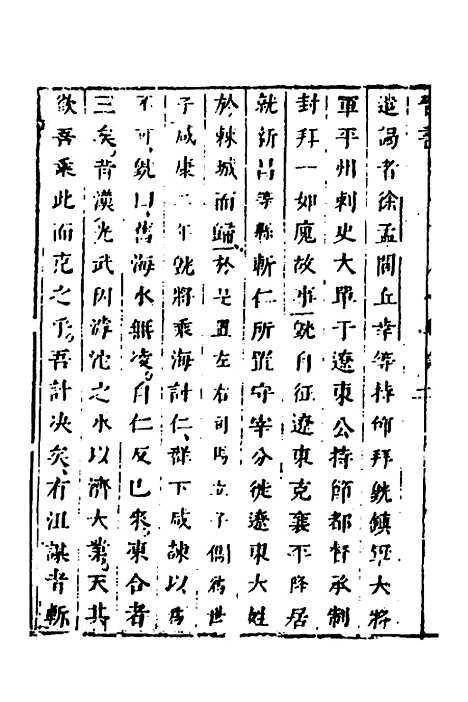 晉書
遣謁者徐孟閭丘幸等持節拜皝鎮軍大將
軍平州刺史大單于遼東公持節都督承制
封拜一如廆故事皝自征遼東克襄平降居
就新昌等縣斬仁所置守宰分徙遼東大姓
於棘城而歸於是置左右司馬立子儁為世
子咸康二年皝將乘海討仁群下咸諫以為
不可皝曰舊海水無凌自仁反已來凍合者
三矣昔漢光武因滹沱之冰以濟大業天其
欲吾乘此而克之乎吾計決矣有沮謀者斬